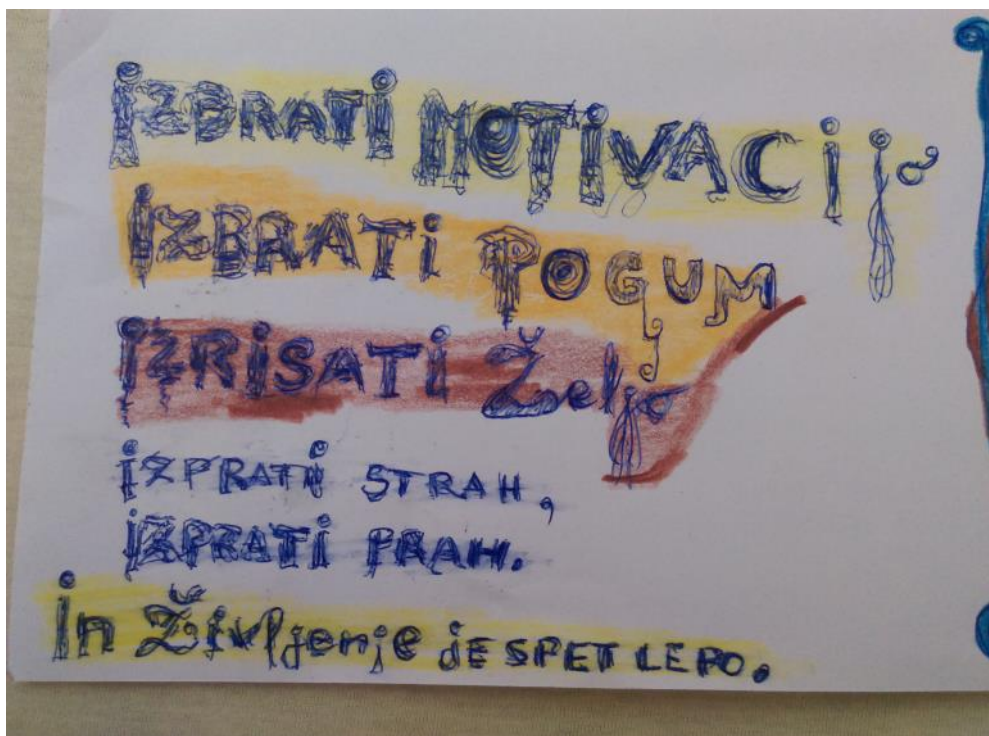 IZBRATI MOTIVACIJO
IZBRATI POGUM
IZRISATI Željo
IZPRATI STRAH,
IZPRATI PRAH.
In Življenje JE SPET LEPO.